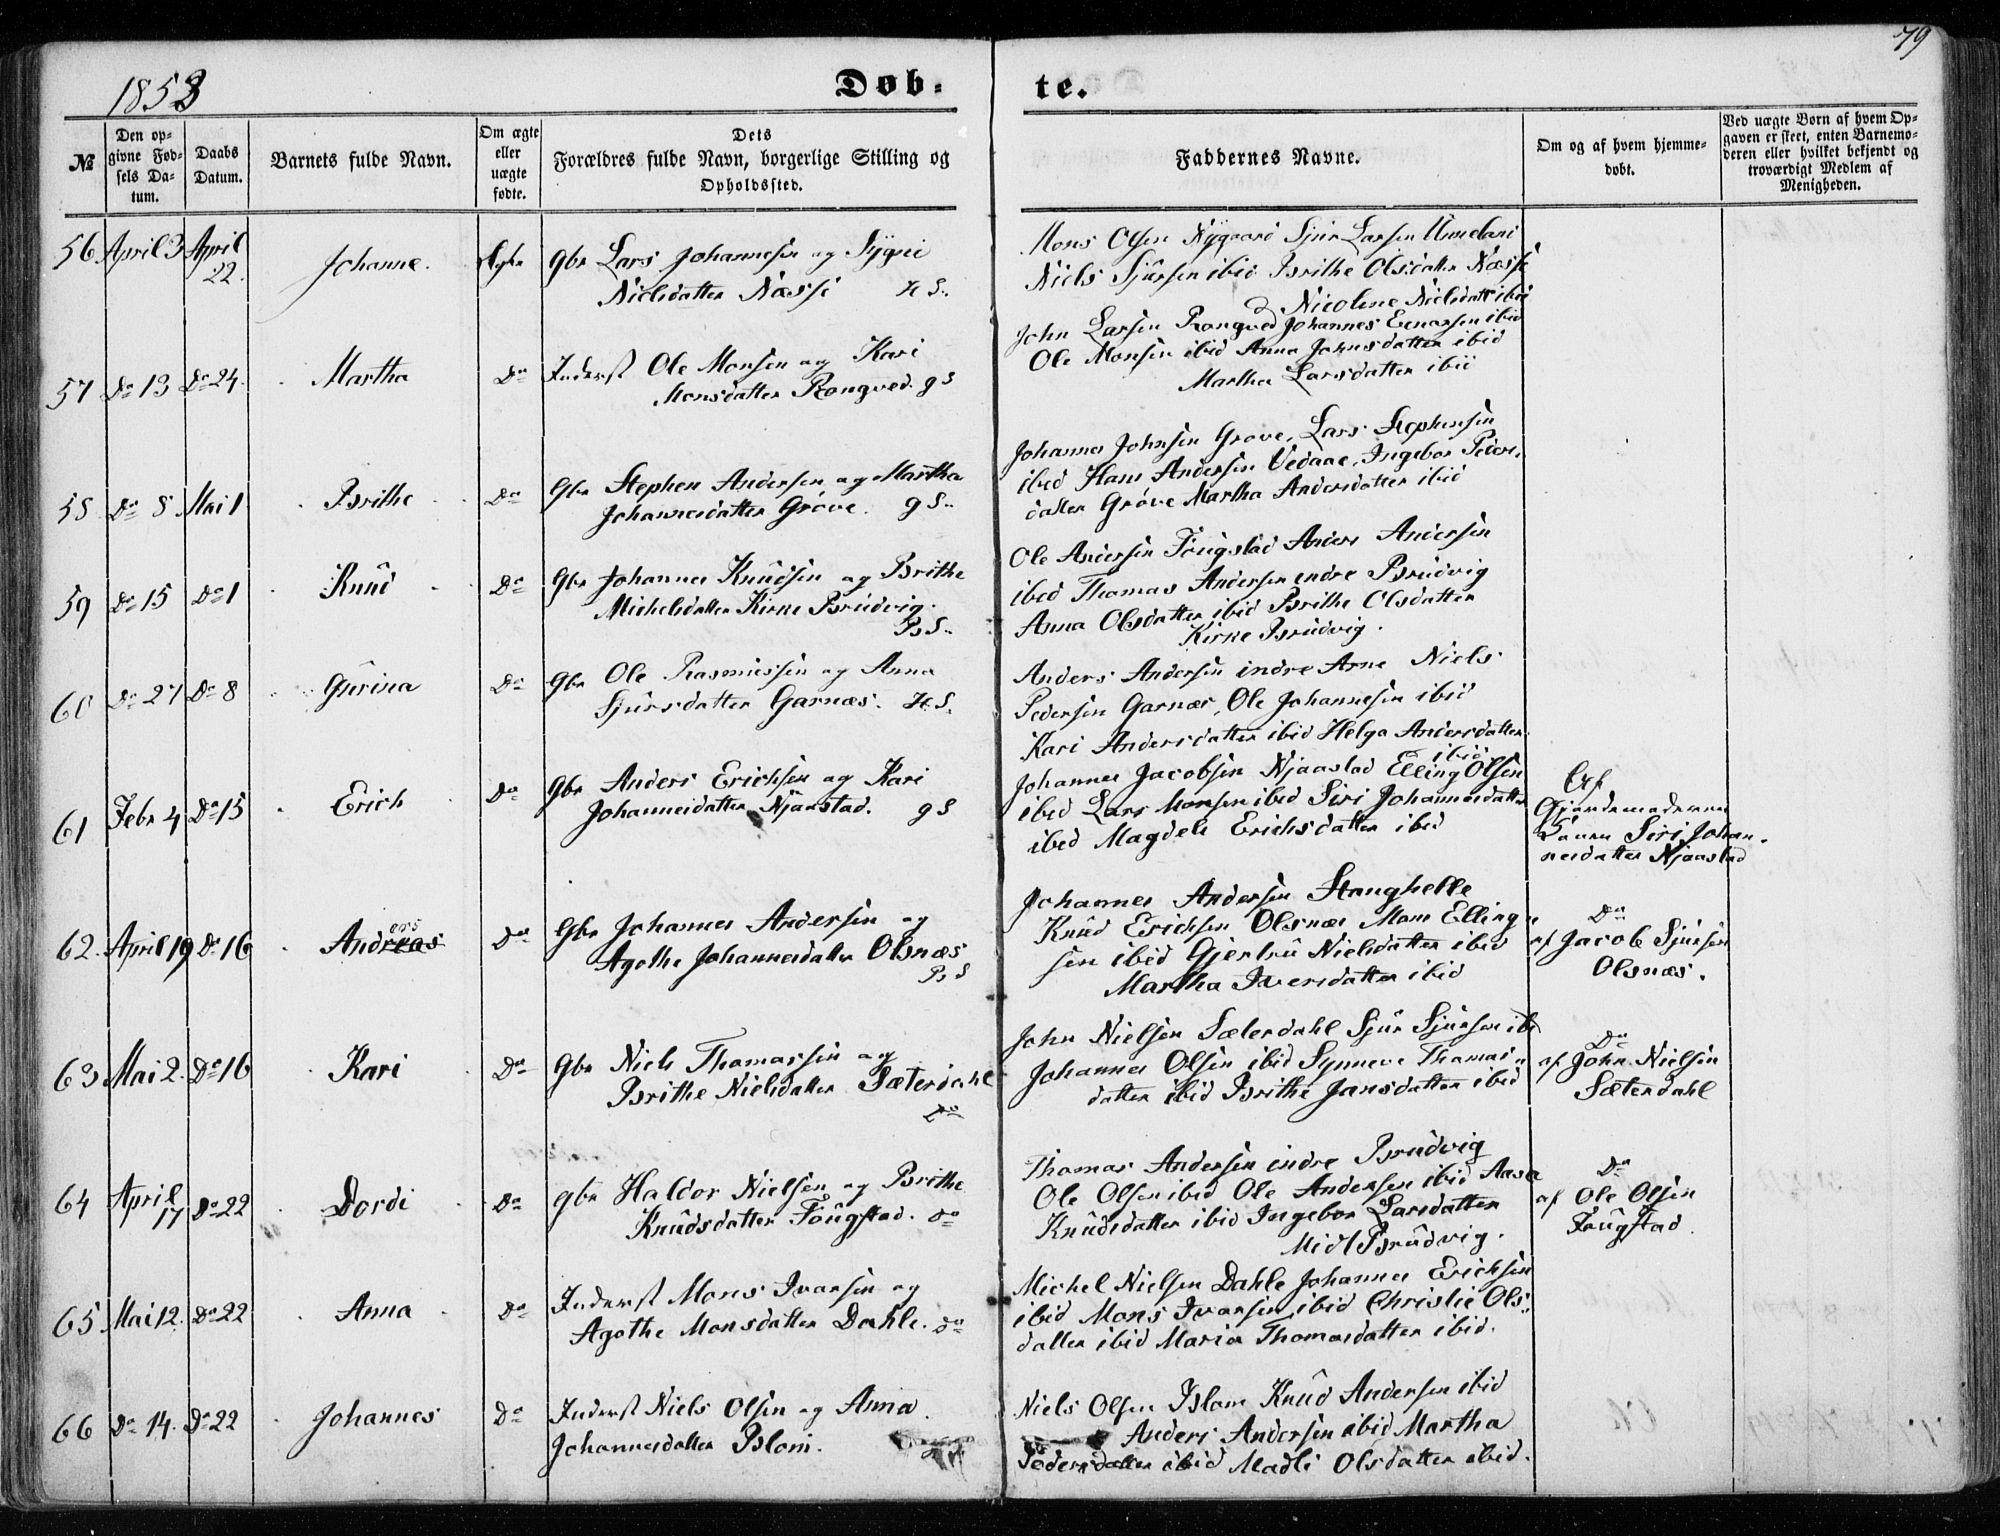 79
1853
Døb-
te.
№
Den op-
givne Fød-
sels Da-
tum.
Daabs
Datum.
Barnets fulde Navn.
Om ægte
eller
uægte
fødte.
Dets
Forældres fulde Navn, borgerlige Stilling og
Opholdssted.
Faddernes Navne.
Om og af hvem hjemme-
døbt.
Ved uægte Børn af hvem Op-
gaven er skeet, enten Barnemo-
deren eller hvilket bekjendt og
troværdigt Medlem af
Menigheden.
56 April 3 April
22.
Johanne.
Gbr Lars Johannesen og Sygni
Nielsdatter Næsse H S.
Mons Olsen Nygaard Sjur Larsen Unneland
Niels Sjursen ibid Brithe Olsdatter Næsse
Nicoline Nielsdatt ibid
57 Do 13 Do 24.
Martha
Do
Inderst Ole Monsen og Kari
Monsdatter Rongved. g S
John Larsen Rongved Johannes Eenarsen ibid
Ole Monsen ibid Anna Johnsdatter ibid
Martha Larsdatter ibid
58 Do 8 Mai 1
Brithe
Do
Gbr Stephen Andersen og Martha
Johannesdatter Grøve. g S.
Johannes Johnsen Grøve, Lars Stephensen
ibid Hans Andersen Vedaae, Ingebor Peders-
datter Grøve Martha Andersdatter ibid
59 Do 15 Do 1
Knud
Do
Gbr Johannes Knudsen og Brithe
Michelsdatter Kirke Brudvig.
Br S.
Ole Andersen Fougstad Anders Andersen
ibid Thomas Andersen indre Brudvig
Anna Olsdatter ibid Brithe Olsdatter
Kirke Brudvig.
60 Do 27 Do 8
Gurina
Do
Gbr Ole Rasmussen og Anna
Sjursdatter Garnæs. H. S.
Anders Andersen indre Arne Niels
Pedersen Garnæs, Ole Johannesen ibid
Kari Andersdatter ibid Helga Andersdatter
ibid
61 Febr 4 Do 15
Erich
Do
Gbr Anders Erichsen og Kari
Johannesdatter Njaastad. g S
Johannes Jacobsen Njaastad Elling Olsen
ibid Lars Monsen ibid Siri Johannesdatter
ibid Magdeli Erichsdatter ibid
Af
Gjordemoderen
Siri Johan-
nesdatter Njaastad
62. April 19 Do 16
Andreas
ers
Do
Gbr Johannes Andersen og
Agothe Johannesdatter Olsnæs
Br S
Johannes Andersen Stanghelle
Knud Erichsen Olsnæs Mons Elling-
sen ibid Gjertru Nielsdatter ibid
Martha Iversdatter ibid
Do
af Jacob Sjursen
Olsnæs.
63 Mai 2. Do 16
Kari
Do
Gbr Niels Thomassen og
Brithe Nielsdatter Sæterdahl
Do
John Nielsen Sæterdahl Sjur Sjursen ibd
Johannes Olsen ibid Synneve Thomas-
datter ibid Brithe Jansdatter ibid
Do
af John Nielsen
Sæterdahl
64 April
17 Do 22
Dordi
Do
Gbr Haldor Nielsen og Brithe
Knudsdatter Fougstad. Do
Thomas Andersen indre Brudvig
Ole Olsen ibid Ole Andersen ibid Aasa
Knudsdatter ibid Ingebor Larsdatter
Midt Brudvig.
Do
af Ole Olsen
Fougstad
65 Mai 12. Do 22
Anna
Do
Inderst Mons Ivarsen og
Agothe Monsdatter Dahle. Do
Michel Nielsen Dahle Johannes Erichsen
ibid Mons Ivarsen ibid Christie Ols-
datter ibid Maria Thomasdatter ibid.
66 Do 14. Do 22
Johannes
Do
Inderst Niels Olsen og Anna
Johannesdatter Islom.
Niels Olsen Islom Knud Andersen ibid
Anders Andersen ibid Martha
Pedersdatter ibid Madli Olsdatter ibid.